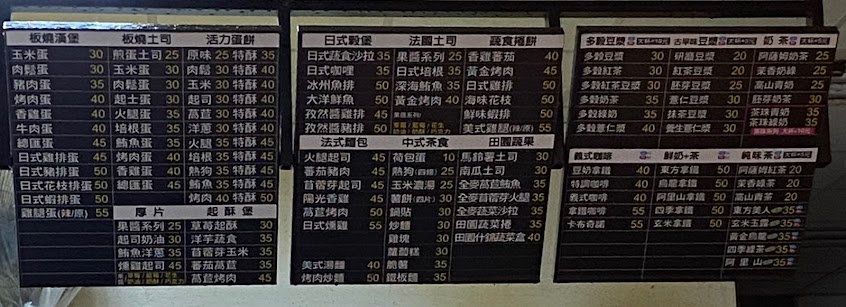 板燒漢堡
玉米蛋 30
肉鬆蛋 30
豬肉蛋 35
烤肉蛋 40
香雞蛋 40
牛肉蛋 40
總匯蛋 45
日式雞排蛋 50
日式豬排蛋 50
日式花枝排蛋 50
日式蝦排蛋 50
雞腿蛋(辣/原) 55
板燒吐司
煎蛋土司 25
玉米蛋 30
肉鬆蛋 30
起士蛋 30
香雞蛋 35
培根蛋 35
鮪魚蛋 35
火腿蛋 35
烤肉蛋 40
香雞蛋 40
總匯蛋 45
活力蛋餅
原味 25 特酥 35
肉鬆 30 特酥 40
玉米 30 特酥 40
起司 30 特酥 40
萵苣 30 特酥 40
洋蔥 30 特酥 40
火腿 35 特酥 45
培根 35 特酥 45
熱狗 35 特酥 45
鮪魚 35 特酥 45
烤肉 40 特酥 50
厚片
果醬系列 25
起司奶油 30
鮪魚起司 35
燻雞起司 35
起酥堡
草莓起酥 30
洋芋蔬食 35
苜蓿芽玉米 35
蕃茄萵苣 40
萵苣烤肉 45
日式穀堡
日式蔬食沙拉 35
日式咖哩 35
冰州魚排 50
大洋鮮魚 50
孜然醬雞排 50
孜然醬豬排 50
法國土司
果醬系列 25
日式培根 35
深海鮪魚 35
黃金烤肉 40
蔬食捲餅
香雞蕃茄 40
黃金烤肉 45
日式雞排 50
海味花枝 50
鮮味蝦排 50
美式雞腿(辣/原) 55
法式麵包
火腿起司 40
蕃茄豬肉 45
苜蓿芽起司 45
陽光香雞 45
萵苣烤肉 50
日式燻雞 55
美式湯麵 40
烤肉炒麵 50
中式茶食
荷包蛋 10
熱狗(四條) 25
玉米濃湯 25
薯餅(四片) 30
鍋貼 30
炒麵 30
雞塊 30
蘿蔔糕 30
脆薯 35
鐵板麵 35
田園蔬果
馬鈴薯土司 30
南瓜土司 30
全麥萵苣鮪魚 35
全麥苜蓿芽火腿 35
全麥蔬菜沙拉 35
田園蔬菜捲 35
田園什錦蔬菜盒 40
多穀豆漿
多穀豆漿 30
多穀紅茶 30
多穀紅茶豆漿 30
多穀奶茶 35
多穀綠豆漿 35
多穀薏仁漿 40
古早味豆漿
研磨豆漿 20
紅茶豆漿 20
胚芽豆漿 30
薏仁豆漿 30
抹茶豆漿 30
養生薏仁漿 30
奶茶
阿薩姆奶茶 25
茉香奶綠 25
高山青奶 25
胚芽奶茶 30
茶珠青奶 35
茶珠奶綠 35
義式咖啡
豆奶拿鐵 40
特調咖啡 40
義式咖啡 40
拿鐵咖啡 55
卡布奇諾 55
鮮奶+茶
東方拿鐵 50
烏龍拿鐵 50
阿里山拿鐵 50
四季拿鐵 50
玄米拿鐵 50
純味茶
阿薩姆紅茶 20
茉香綠茶 20
高山青茶 20
東方美人 35
玄米玉露 35
黃金烏龍 35
四季香 35
阿里山 35